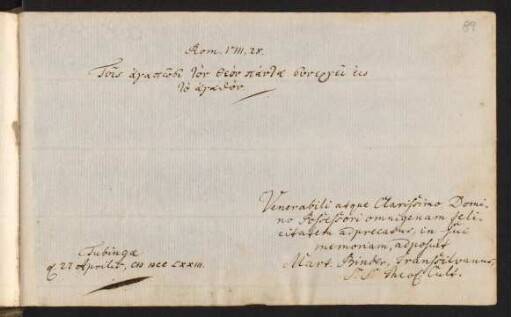 89
Rom. VIII. 28.
Τοῖς ἀγαπῶσι τὸν θεὸν πάντα συνεργεῖ εἰς
τὸ ἀγαθόν.
Venerabili atque Clarissimo Domi-
no Possessori omnigenam feli-
citatem adprecatur, in sui
memoriam, adposuit
Mart. Binder, Transsilvanus,
S. S. Theol. Cult.
Tubingæ
d. 22 Aprilis, CIƆ IƆCC LXXIII.